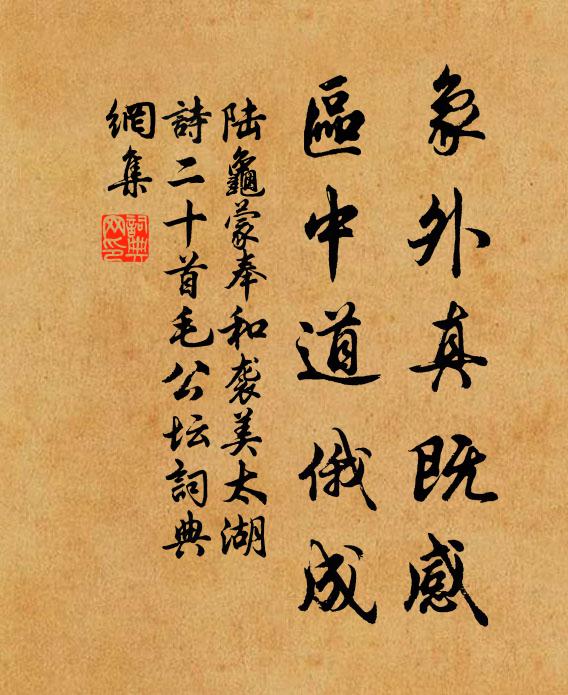 象外真既感
區中道俄成
陆龜蒙奉和袭美太湖
詩二十首毛公坛詞典
網集
詞典
网印